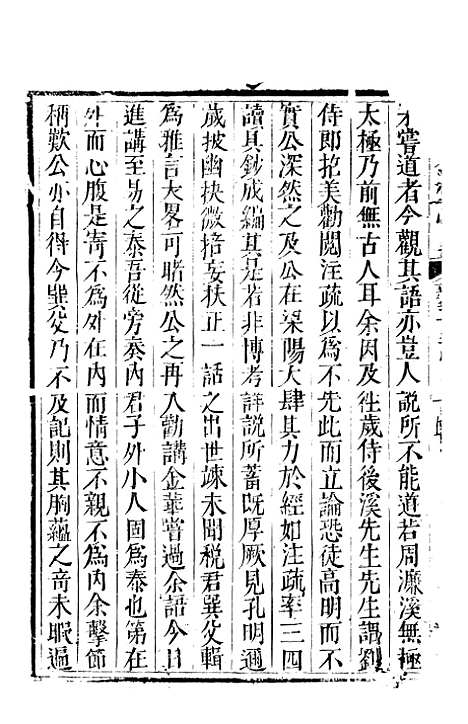 未嘗道者今觀其語亦豈人說所不能道若周濂溪無極
太極乃前無古人耳余因及徃歲侍後溪先生先生謂劉
侍郎招美勸閱注疏以為不先此而立論恐徒高明而不
實公深然之及公在渠陽大肆其力於經如注疏率三四
讀具鈔成編其是若非博考詳說所蓄既厚厥見孔明邇
歲披幽抉微掊妄扶正一話之出世諫未聞稅君㢲父輯
為雅言大畧可睹然公之再入勸講金華嘗過余語今日
進講至易之泰吾從旁奏內君子外小人固為泰也第在
外而心腹是寄不為外在內而情意不親不為內余擊節
稱歎公亦自得今㢲父乃不及記則其胸蘊之音未暇過